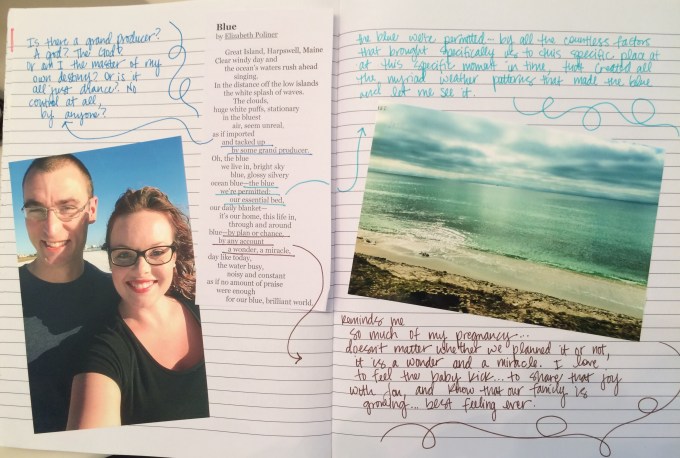 Is there a grand producer?
A god? The God?
Or am I the master of my
own destiny? Or is it
all just chance? No
control at all,
by anyone?
Blue
by Elizabeth Poliner
Great Island, Harpswell, Maine
Clear windy day and
the ocean's waters rush ahead
singing.
In the distance off the low islands
the white splash of waves.
The clouds,
huge white puffs, stationary
in the bluest
air, seem unreal,
as if imported
and tacked up
by some grand producer.
Oh, the blue
we live in, bright sky
blue, glossy silvery
ocean blue—the blue
we're permitted;
our essential bed,
our daily blanket—
it's our home, this life in,
through and around
blue—by plan or chance,
by any account
a wonder, a miracle,
day like today,
the water busy,
noisy and constant
as if no amount of praise
were enough
for our blue, brilliant world.
the blue we're permitted – by all the countless factors
that brought specifically us to this specific place at
at this specific moment in time, that created all
the myriad weather patterns that made the blue
and let me see it.
Reminds me
so much of my pregnancy...
doesn't matter whether we planned it or not,
it is a wonder and a miracle. I love
to feel the baby kick... to share that joy
with you, and know that our family is
growing... best feeling ever.